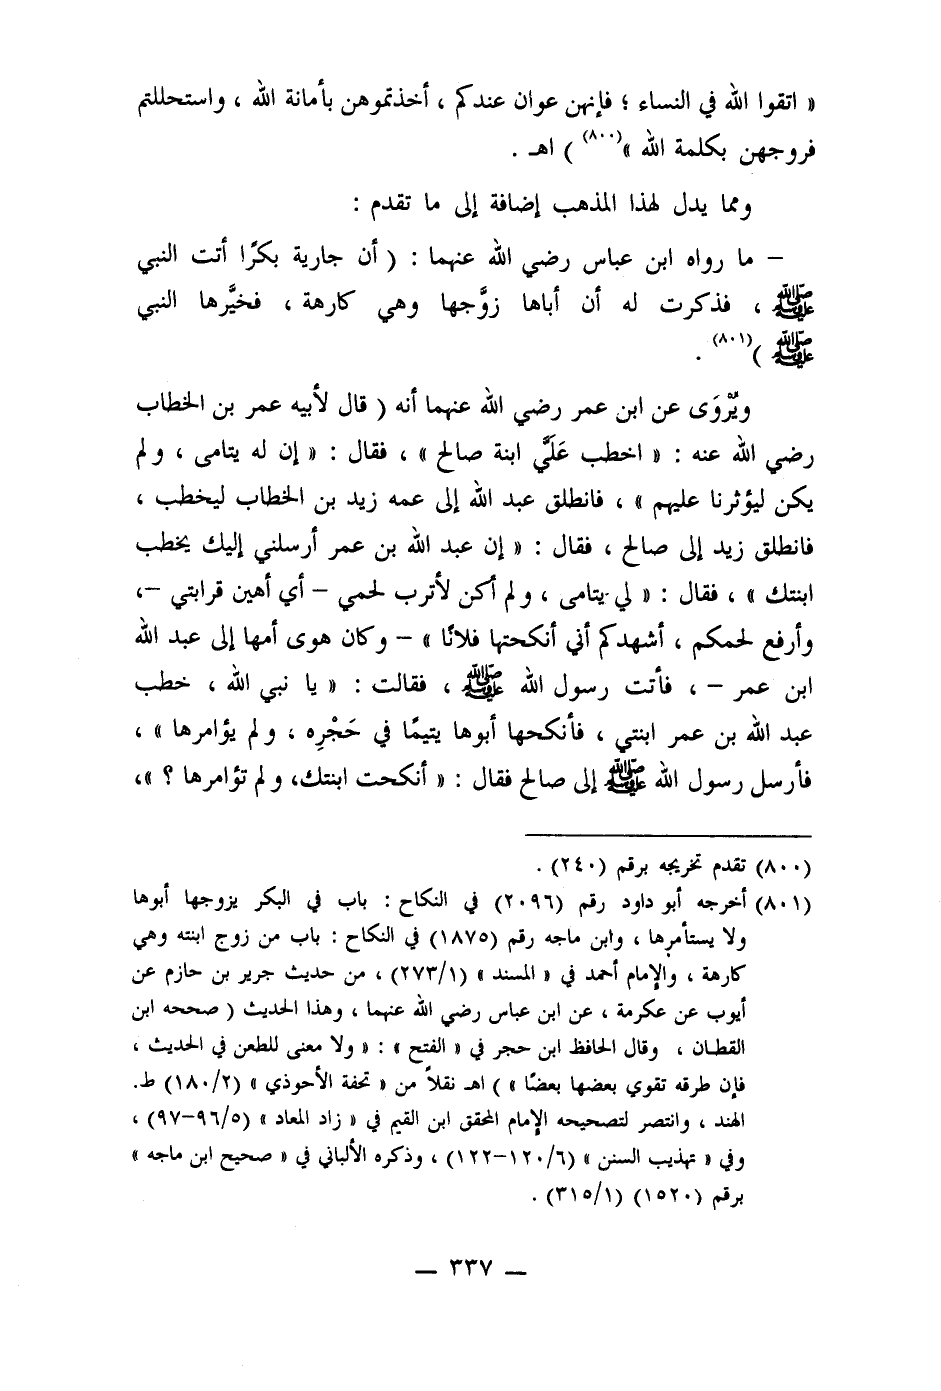 « اتقوا الله في النساء ؛ فإنهن عوان عندكم ، أخذتموهن بأمانة الله ، واستحللتم
فروجهن بكلمة الله »(٨٠٠) ) اهـ .
ومما يدل لهذا المذهب إضافة إلى ما تقدم :
– ما رواه ابن عباس رضي الله عنهما : ( أن جارية بكرًا أتت النبي
ﷺ ، فذكرت له أن أباها زوَّجها وهي كارهة ، فخيَّرها النبي
ﷺ )(٨٠١) .
ويُرْوَى عن ابن عمر رضي الله عنهما أنه ( قال لأبيه عمر بن الخطاب
رضي الله عنه : « اخطب عَلَيَّ ابنة صالح » ، فقال : « إن له يتامى ، ولم
يكن ليؤثرنا عليهم » ، فانطلق عبد الله إلى عمه زيد بن الخطاب ليخطب ،
فانطلق زيد إلى صالح ، فقال : « إن عبد الله بن عمر أرسلني إليك يخطب
ابنتك » ، فقال : « لي يتامى ، ولم أكن لأترب لحمي – أي أهين قرابتي –،
وأرفع لحمكم ، أشهدكم أني أنكحتها فلانًا » – وكان هوى أمها إلى عبد الله
ابن عمر – ، فأتت رسول الله ﷺ ، فقالت : « يا نبي الله ، خطب
عبد الله بن عمر ابنتي ، فأنكحها أبوها يتيمًا في حَجْرِه ، ولم يؤامرها » ،
فأرسل رسول الله ﷺ إلى صالح فقال : « أنكحت ابنتك، ولم تؤامرها ؟ »،
(٨٠٠) تقدم تخريجه برقم (٢٤٠) .
(٨٠١) أخرجه أبو داود رقم (٢٠٩٦) في النكاح : باب في البكر يزوجها أبوها
ولا يستأمرها ، وابن ماجه رقم (١٨٧٥) في النكاح : باب من زوج ابنته وهي
كارهة ، والإمام أحمد في « المسند » (٢٧٣/١) ، من حديث جرير بن حازم عن
أيوب عن عكرمة ، عن ابن عباس رضي الله عنهما ، وهذا الحديث ( صححه ابن
القطان ، وقال الحافظ ابن حجر في « الفتح » : « ولا معنى للطعن في الحديث ،
فإن طرقه تقوي بعضها بعضًا » ) اهـ نقلاً من « تحفة الأحوذي » (١٨٠/٢) ط.
الهند ، وانتصر لتصحيحه الإمام المحقق ابن القيم في « زاد المعاد » (٩٦/٥–٩٧) ،
وفي « تهذيب السنن » (١٢٠/٦–١٢٢) ، وذكره الألباني في « صحيح ابن ماجه »
برقم (١٥٢٠) (٣١٥/١) .
— ٣٣٧ —